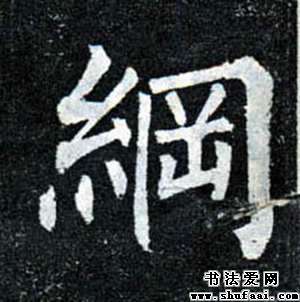 綱
书法爱网
www.shufaai.com